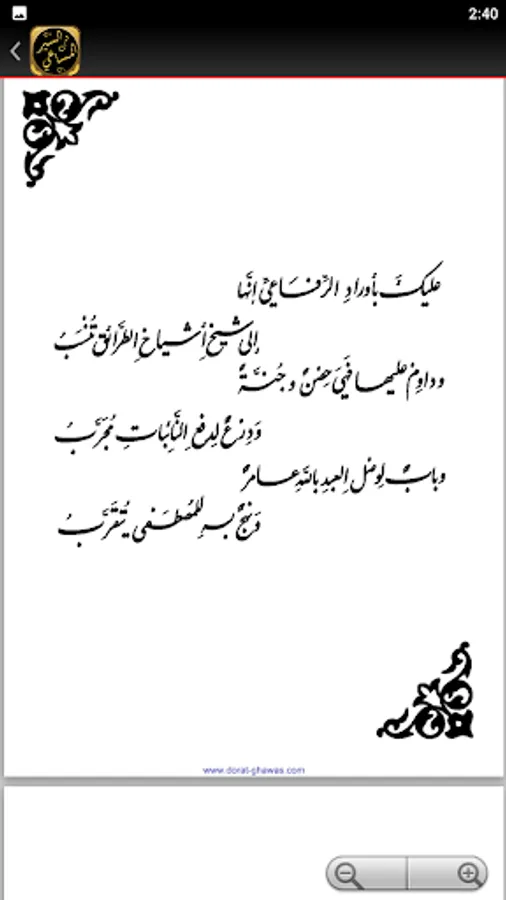 2:40
السير
المساعي
عليكَ بأورادِ الرِّفاعيِّ إنَّها
إلى شيخِ أشياخِ الطرَّائقِ تُنْسَبُ
وداوِمْ عليها فهيَ حِصْنٌ وجُنَّةٌ
وَدِرْعٌ لدفعِ النَّائباتِ مُجرَّبُ
وبابٌ لِوصْلِ العبدِ باللهِ عامرٌ
وَنهجٌ بهِ للمُصْطَفى يُتَقَرَّبُ
www.dorat-ghawas.com